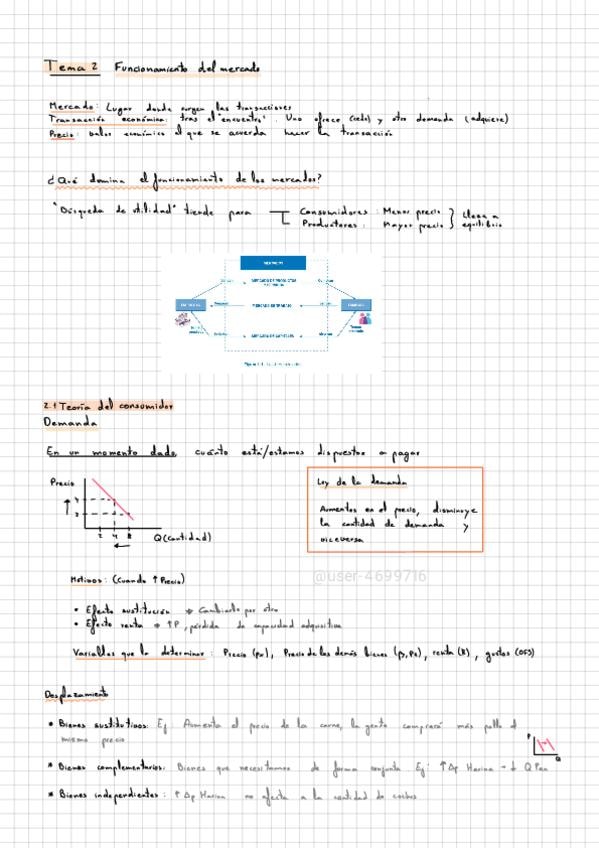 Tema 2 Funcionamiento del mercado
Mercado: Lugar donde surgen las transacciones
Transacción económica: tras el "encuentro". Uno ofrece (cede) y otro demanda (adquiere)
Precio: valor económico al que se acuerda hacer la transacción
¿Qué domina el funcionamiento de los mercados?
"Búsqueda de utilidad" tiende para
Consumidores: Menor precio
Productores: Mayor precio
Llega a
equilibrio
MERCADO DE TRABAJO
2.1 Teoría del consumidor
Demanda
En un momento dado, cuánto está/estamos dispuestos a pagar
Precio
↑
2 4 8
←
Q (cantidad)
Ley de la demanda
Aumentos en el precio, disminuye
la cantidad de demanda y
viceversa
@user-4699716
Motivos: (Cuando ↑ Precio)
• Efecto sustitución → Cambiarlo por otro
• Efecto renta → ↑P, pérdida de capacidad adquisitiva
Variables que la determinan: Precio (px), Precio de los demás bienes (py, pz), renta (R), gustos (GFS)
Desplazamiento
• Bienes sustitutivos: Ej: Aumenta el precio de la carne, la gente comprará más pollo al
mismo precio
P
Q
* Bienes complementarios: Bienes que necesitamos de forma conjunta Ej: ↑Δp Harina → ↓ Q Pan
* Bienes independientes: ↑Δp Harina no afecta a la cantidad de coches